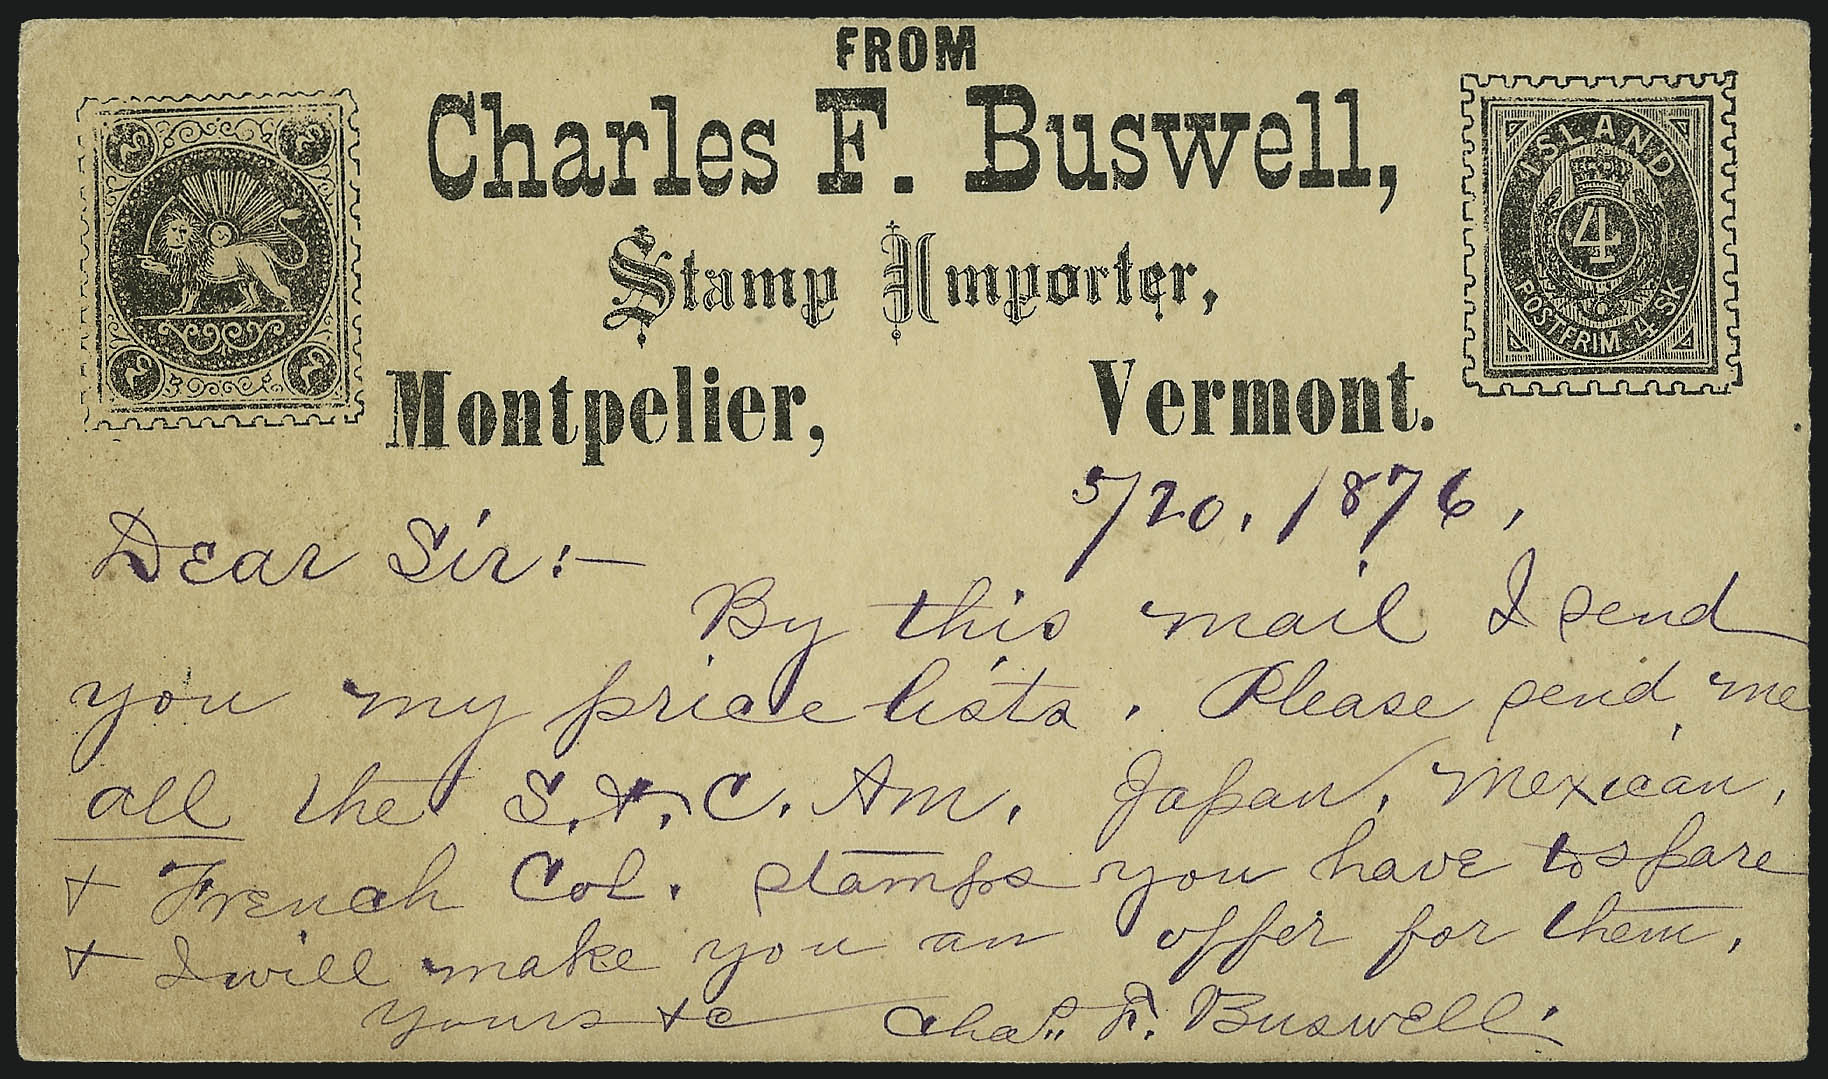 FROM
Charles F. Buswell,
Stamp Importer,
Montpelier, Vermont.
ISLAND
4
POSTFRIM. 4 SK
5/20, 1876,
Dear Sir:—
By this mail I send
you my price lists. Please send me
all the S. & C. Am. Japan, Mexican,
& French Col. stamps you have to spare
& I will make you an offer for them.
Yours &c Chas. F. Buswell.